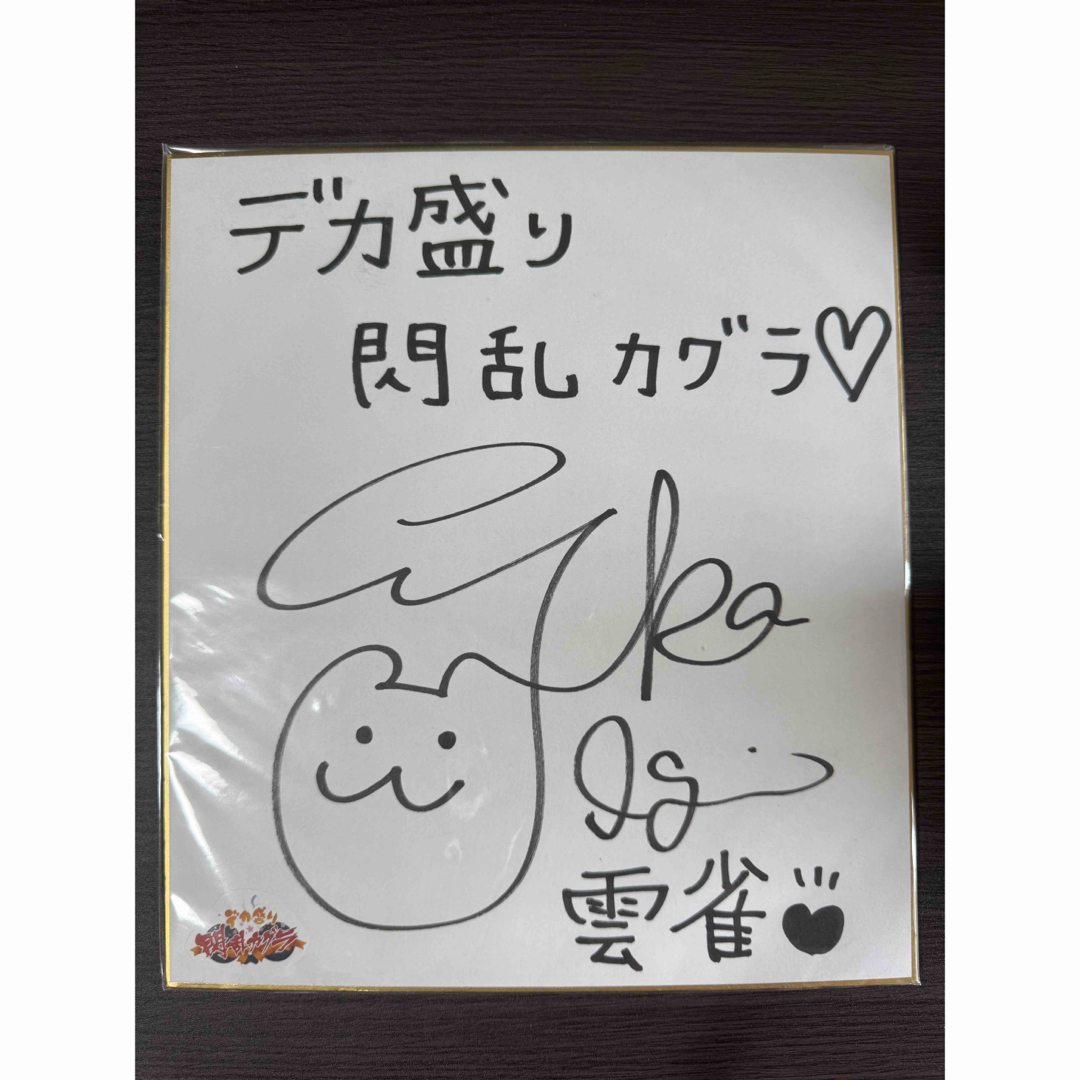 デカ盛り
閃乱カグラ♡
雲雀
デカ盛り
閃乱カグラ